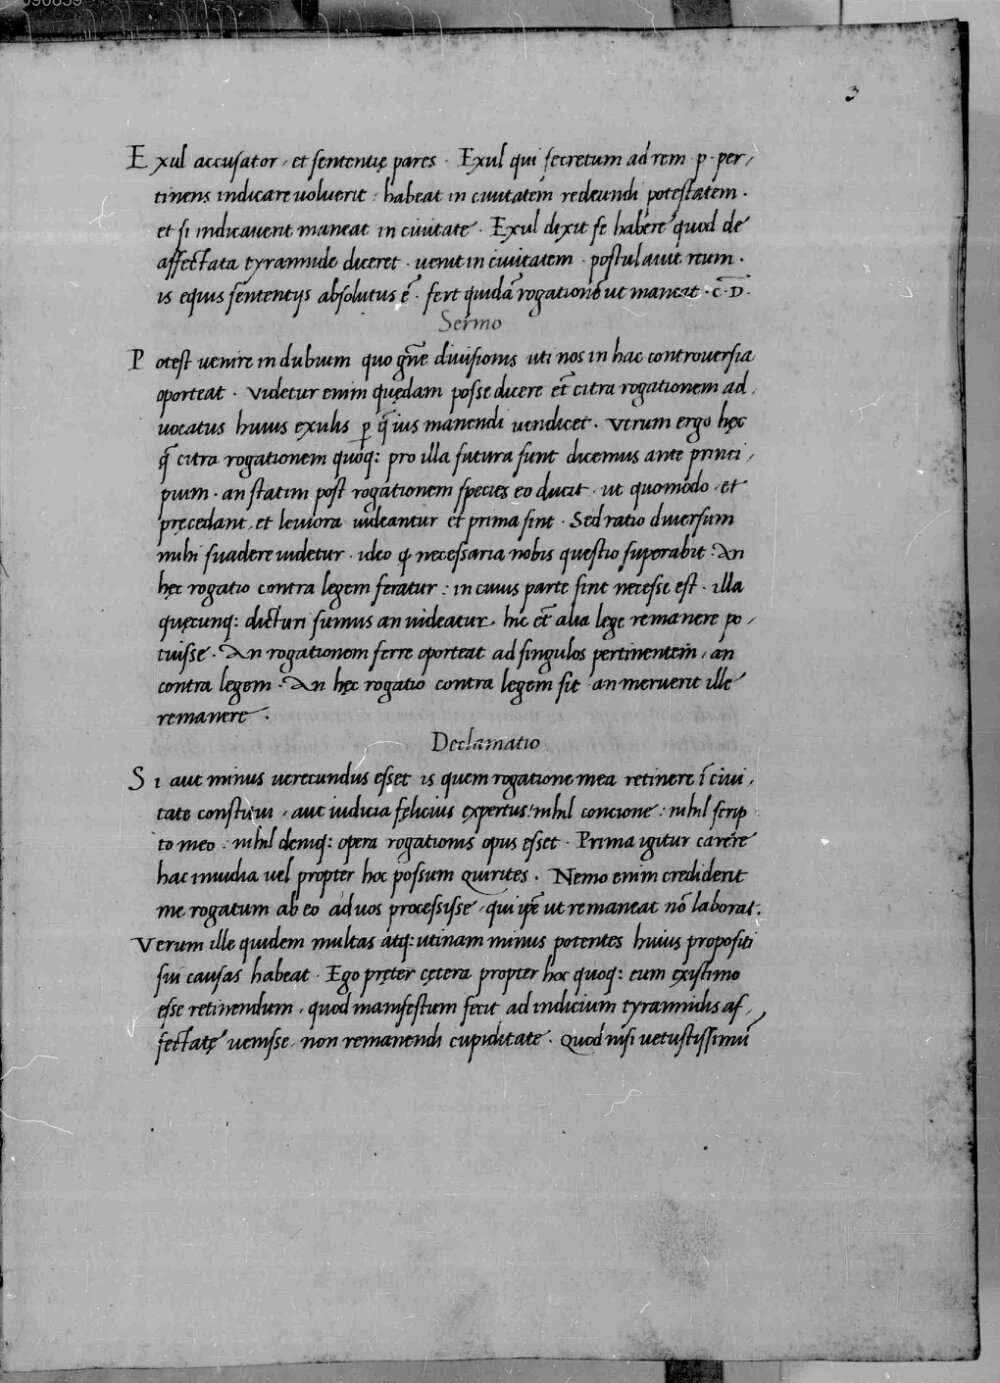 090859
3
Exul accusator, et sententię pares. Exul qui secretum ad rem .p. per,
tinens indicare uoluerit: habeat in ciuitatem redeundi potestatem.
et si indicauerit maneat in ciuitate. Exul dixit se habere quod de
affectata tyrannide diceret. uenit in ciuitatem. postulauit reum.
is equis sententijs absolutus ē. fert quidā rogationē ut maneat. C̄.D̄.
Sermo
Potest uenire in dubium quo gn̄e diuisionis uti nos in hac controuersia
oporteat. Videtur enim quędam posse dicere et̄ citra rogationem ad,
uocatus huius exulis p̱ q̄ ius manendi uendicet. Verum ergo hęc
q̄ citra rogationem quoq: pro illa futura sunt dicemus ante princi,
pium. an statim post rogationem species eo ducit. ut quomodo. et
pręcedant, et leuiora uideantur et prima sint. Sed ratio diuersum
mihi suadere uidetur. ideo ꝙ necessaria nobis questio superabit: An
hęc rogatio contra legem feratur: in cuius parte sint necesse est. illa
quęcunq: dicturi sumus an uideatur. hic et̄ alia lege remanere po,
tuisse. An rogationem ferre oporteat ad singulos pertinentem, an
contra legem. An hęc rogatio contra legem sit an meruerit ille
remanere.
Declamatio
Si aut minus uerecundus esset is quem rogatione mea retinere ī ciui,
tate constitui, aut iudicia fęlicius expertus: nihil concione: nihil scrip
to meo: nihil deniq: opera rogationis opus esset. Prima igitur carere
hac inuidia uel propter hoc possum quirites. Nemo enim crediderit
me rogatum ab eo ad uos processisse, qui ip̄e ut remaneat nō laborat.
Verum ille quidem multas atq: utinam minus potentes huius propositi
sui causas habeat. Ego pręter cętera propter hoc quoq: eum existimo
esse retinendum, quod manifestum fecit ad indicium tyrannidis af,
fectatę uenisse, non remanendi cupiditate. Quod nisi uetustissimū